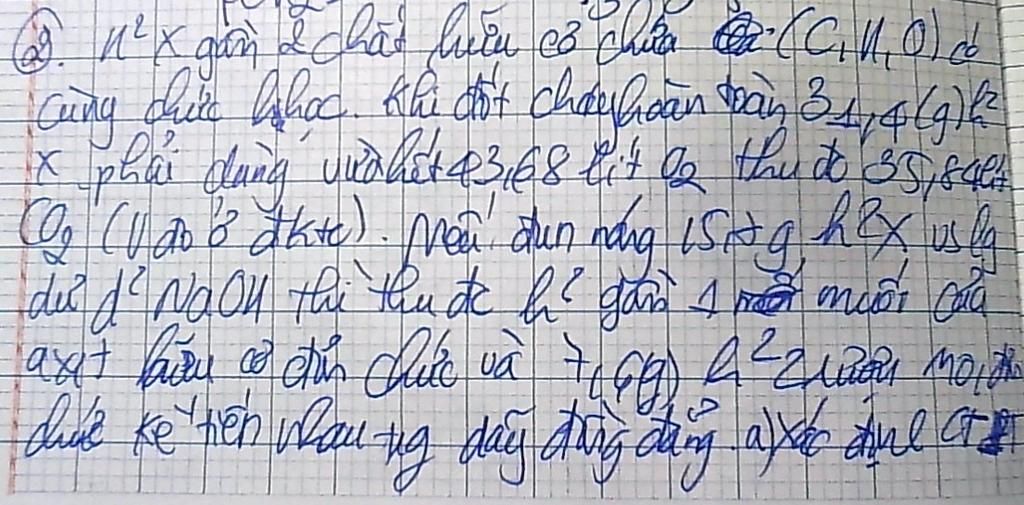 ②. h² X gồm 2 chất hữu cơ chứa (C, H, O) có
cùng chức hhọc. Khi đốt cháy hoàn toàn 31,4(g) h²
X phải dùng vừa hết 43,68 lít O₂ thu đc 35,84 lít
CO₂ (V đo ở đktc). Nếu đun nóng 15,7 g h² X vs lg
dư d² NaOH thì thu đc h² gồm 1 muối của
axit hữu cơ đơn chức và 7,6(g) h² 2 rượu no, đơn
chức kế tiếp nhau tg dãy đồng đẳng. a) Xác định CT